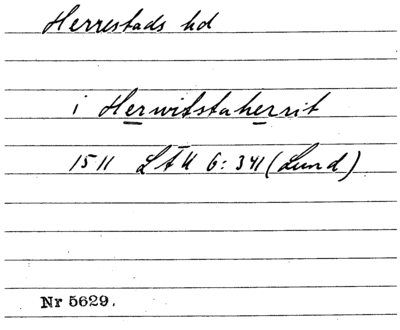 Herrestads hd
i Herwitstaherrit
1511 LÄU 6: 341 (Lund)
Nr 5629.